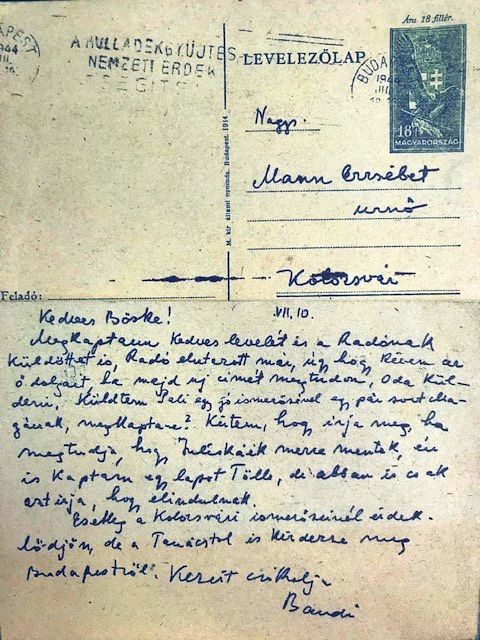 Ára 18 fillér.
BUDAPEST
1944
A HULLADÉKGYŰJTÉS
NEMZETI ÉRDEK
SEGÍTS
LEVELEZŐLAP
BUDAPEST
1944
18
MAGYARORSZÁG
Nagys.
Mann Erzsébet
urnő
Kolozsvár
M. kir. állami nyomda. Budapest. 1914
Feladó:
Kedves Böske! VII. 10.
Megkaptam kedves levelét és a Radónak
küldöttet is, Radó elutazott már, úgy hogy kérem az
ő dolgait ha majd uj címét megtudom, oda kül-
deni. Küldtem Pali egy jó ismerősénél egy pár sort
megkapta? Kértem, hogy írja meg ha
megtudja, hogy Juliskáék merre mentek, én
is kaptam egy lapot Tőlle, de abban is csak
azt írja, hogy elindulnak
Esetleg a Kolozsvári ismerőseinél érdek-
lődjön, de a Tanácstol is kérdezze meg
Budapestről. Kezeit csókolja
Bandi